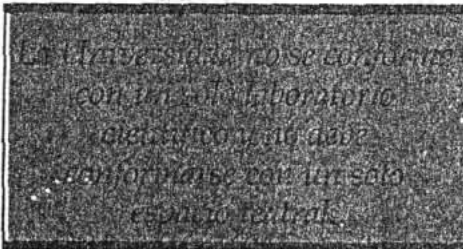 La Universidad no se conforma
con un solo laboratorio
científico y no debe
conformarse con un solo
espacio teatral.